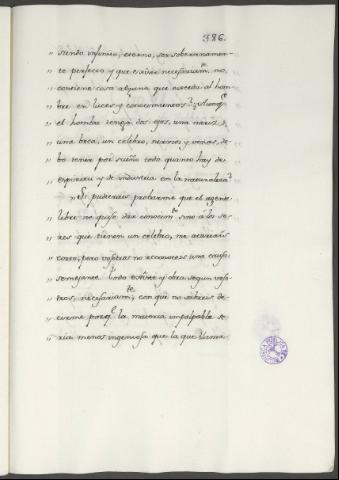 386.
" siendo infinito, eterno, ser soberanamen-
" te perfecto y que existe necesariamte. no
" contiene cosa alguna que exceda al hom
" bre en luces y conocimientos?
" el hombre tenga dos ojos, una nariz,
" una boca, un celebro, nervios y venas, de
" bo tener por sueño todo quanto hay de
" espiritu y de industria en la naturaleza?
" Si pudierais probarme que el agente
" libre no quiso dar conocimto. sino á los se-
" res que tienen un celebro, me
" pero vosotros no reconoceis una causa
" semejante. Todo existe y obra segun voso
" tros, necesariamte.; con que no sabreis de-
" cirme porqe. la materia impalpable se
" ria menos ingeniosa que la que llama